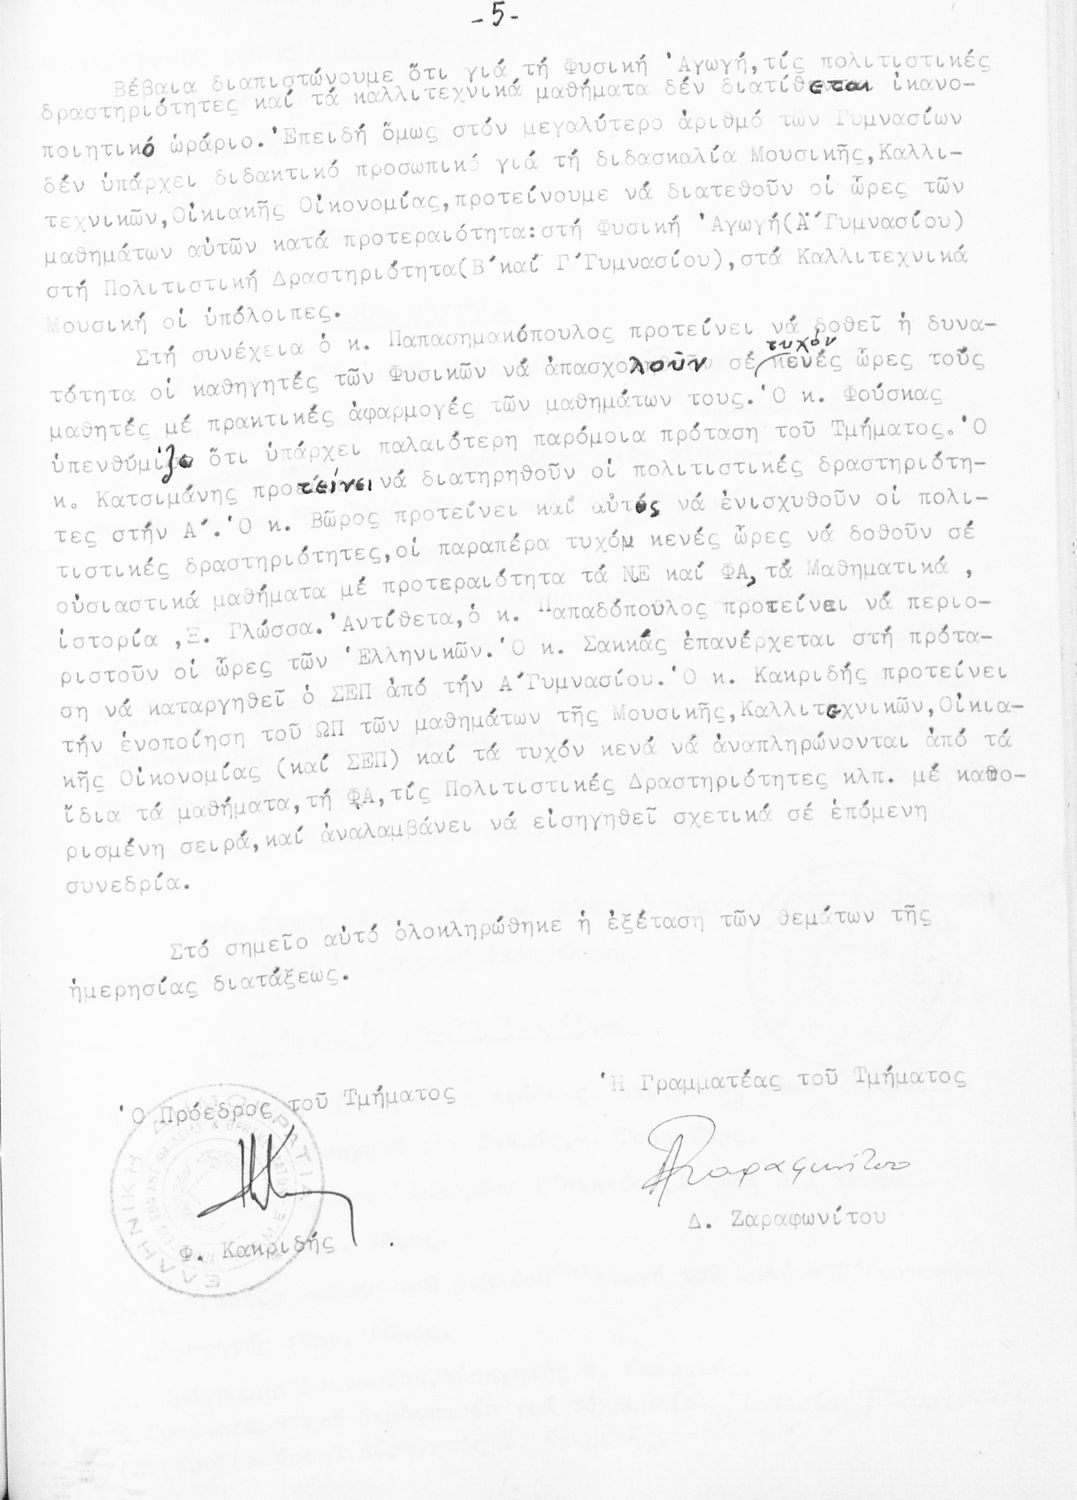 -5-
Βέβαια διαπιστώνουμε ὅτι γιά τή Φυσική Ἀγωγή, τίς πολιτιστικές
δραστηριότητες καί τά καλλιτεχνικά μαθήματα δέν διατίθεται ἱκανο-
ποιητικό ὡράριο. Ἐπειδή ὅμως στόν μεγαλύτερο ἀριθμό τῶν Γυμνασίων
δέν ὑπάρχει διδακτικό προσωπικό γιά τή διδασκαλία Μουσικῆς, Καλλι-
τεχνικῶν, Οἰκιακῆς Οἰκονομίας, προτείνουμε νά διατεθοῦν οἱ ὧρες τῶν
μαθημάτων αὐτῶν κατά προτεραιότητα: στή Φυσική Ἀγωγή (Α΄ Γυμνασίου)
στή Πολιτιστική Δραστηριότητα (Β΄ καί Γ΄ Γυμνασίου), στά Καλλιτεχνικά
Μουσική οἱ ὑπόλοιπες.
Στή συνέχεια ὁ κ. Παπασημακόπουλος προτείνει νά δοθεῖ ἡ δυνα-
τότητα οἱ καθηγητές τῶν Φυσικῶν νά ἀπασχολοῦν σέ τυχόν κενές ὧρες τούς
μαθητές μέ πρακτικές ἀφαρμογές τῶν μαθημάτων τους. Ὁ κ. Φούσκας
ὑπενθύμιζε ὅτι ὑπάρχει παλαιότερη παρόμοια πρόταση τοῦ Τμήματος. Ὁ
κ. Κατσιμάνης προτείνει νά διατηρηθοῦν οἱ πολιτιστικές δραστηριότη-
τες στήν Α΄. Ὁ κ. Βῶρος προτείνει καί αὐτός νά ἐνισχυθοῦν οἱ πολι-
τιστικές δραστηριότητες, οἱ παραπέρα τυχόμ κενές ὧρες νά δοθοῦν σέ
οὐσιαστικά μαθήματα μέ προτεραιότητα τά ΝΕ καί ΦΑ, τά Μαθηματικά ,
ἱστορία , Ξ. Γλώσσα. Ἀντίθετα, ὁ κ. Παπαδόπουλος προτείνει νά περιο-
ριστοῦν οἱ ὧρες τῶν Ἑλληνικῶν. Ὁ κ. Σακκάς ἐπανέρχεται στή πρότα-
ση νά καταργηθεῖ ὁ ΣΕΠ ἀπό τήν Α΄ Γυμνασίου. Ὁ κ. Κακριδής προτείνει
τήν ἑνοποίηση τοῦ ΩΠ τῶν μαθημάτων τῆς Μουσικῆς, Καλλιτεχνικῶν, Οἰκια-
κῆς Οἰκονομίας (καί ΣΕΠ) καί τά τυχόν κενά νά ἀναπληρώνονται ἀπό τά
ἴδια τά μαθήματα, τή ΦΑ, τίς Πολιτιστικές Δραστηριότητες κλπ. μέ καθο-
ρισμένη σειρά, καί ἀναλαμβάνει νά εἰσηγηθεῖ σχετικά σέ ἑπόμενη
συνεδρία.
Στό σημεῖο αὐτό ὁλοκληρώθηκε ἡ ἐξέταση τῶν θεμάτων τῆς
ἡμερησίας διατάξεως.
Ὁ Πρόεδρος τοῦ Τμήματος
Ἡ Γραμματέας τοῦ Τμήματος
ΕΛΛΗΝΙΚΗ ΔΗΜΟΚΡΑΤΙΑ
Ζαραφωνίτου
Φ. Κακριδής
Δ. Ζαραφωνίτου